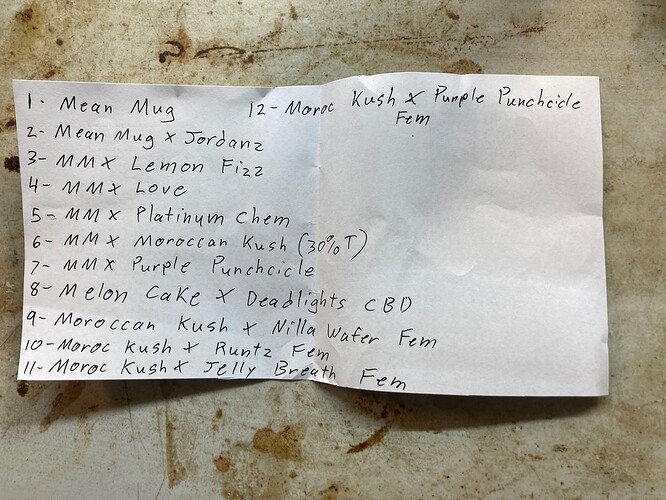 1- Mean Mug
2- Mean Mug x Jordanz
3- MMX Lemon Fizz
4- MMX Love
5- MMX Platinum Chem
6- MMX Moroccan Kush (30% T)
7- MMX Purple Punchcicle
8- Melon Cake X Deadlights CBD
9- Moroccan Kush x Nilla Wafer Fem
10- Moroc Kush x Runtz Fem
11- Moroc Kush x Jelly Breath Fem
12- Moroc Kush x Purple Punchcicle
Fem